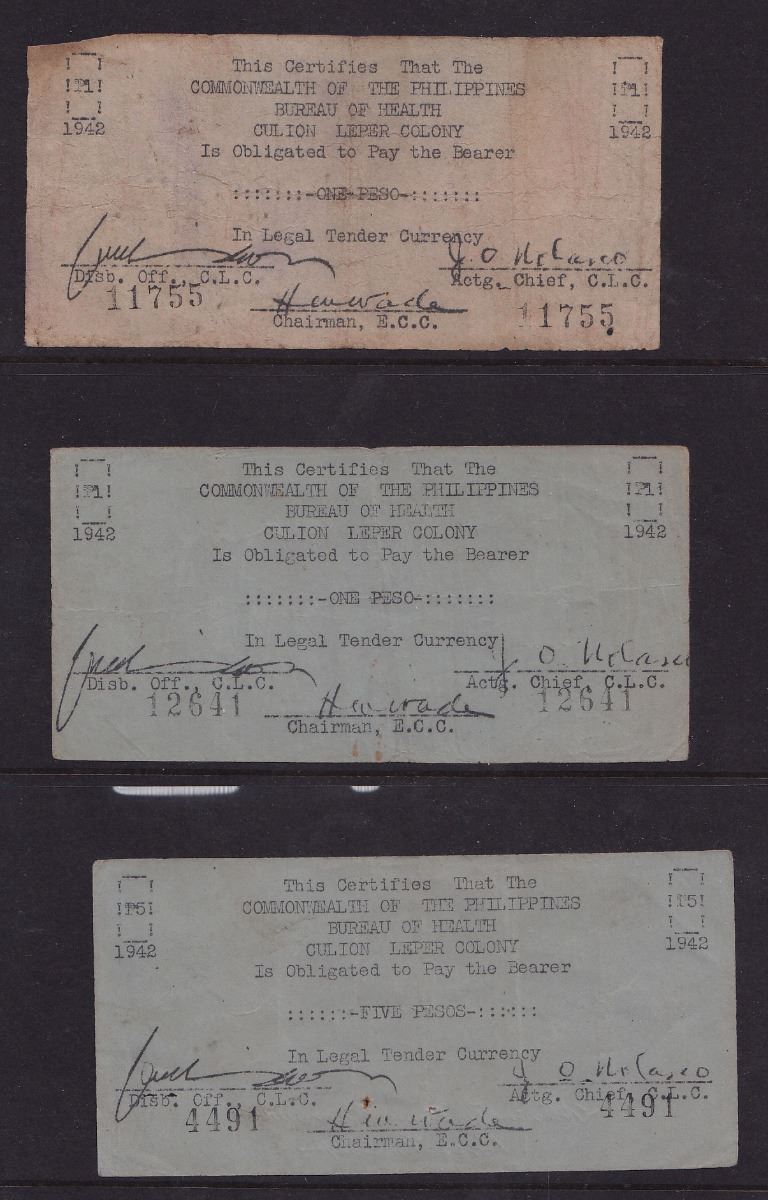 This Certifies That The
!P1! COMMONWEALTH OF THE PHILIPPINES !P1!
BUREAU OF HEALTH
1942 CULION LEPER COLONY 1942
Is Obligated to Pay the Bearer
:::::::-ONE PESO-:::::::
In Legal Tender Currency
J. O. Nolasco
Disb. Off., C.L.C. Actg. Chief, C.L.C.
11755 H W Wade 11755
Chairman, E.C.C.
This Certifies That The
!P1! COMMONWEALTH OF THE PHILIPPINES !P1!
BUREAU OF HEALTH
1942 CULION LEPER COLONY 1942
Is Obligated to Pay the Bearer
:::::::-ONE PESO-:::::::
In Legal Tender Currency
J. O. Nolasco
Disb. Off., C.L.C. Actg. Chief, C.L.C.
12641 H W Wade 12641
Chairman, E.C.C.
This Certifies That The
!P5! COMMONWEALTH OF THE PHILIPPINES !P5!
BUREAU OF HEALTH
1942 CULION LEPER COLONY 1942
Is Obligated to Pay the Bearer
::::::-FIVE PESOS-::::::
In Legal Tender Currency
J. O. Nolasco
Disb. Off., C.L.C. Actg. Chief, C.L.C.
4491 H W Wade 4491
Chairman, E.C.C.